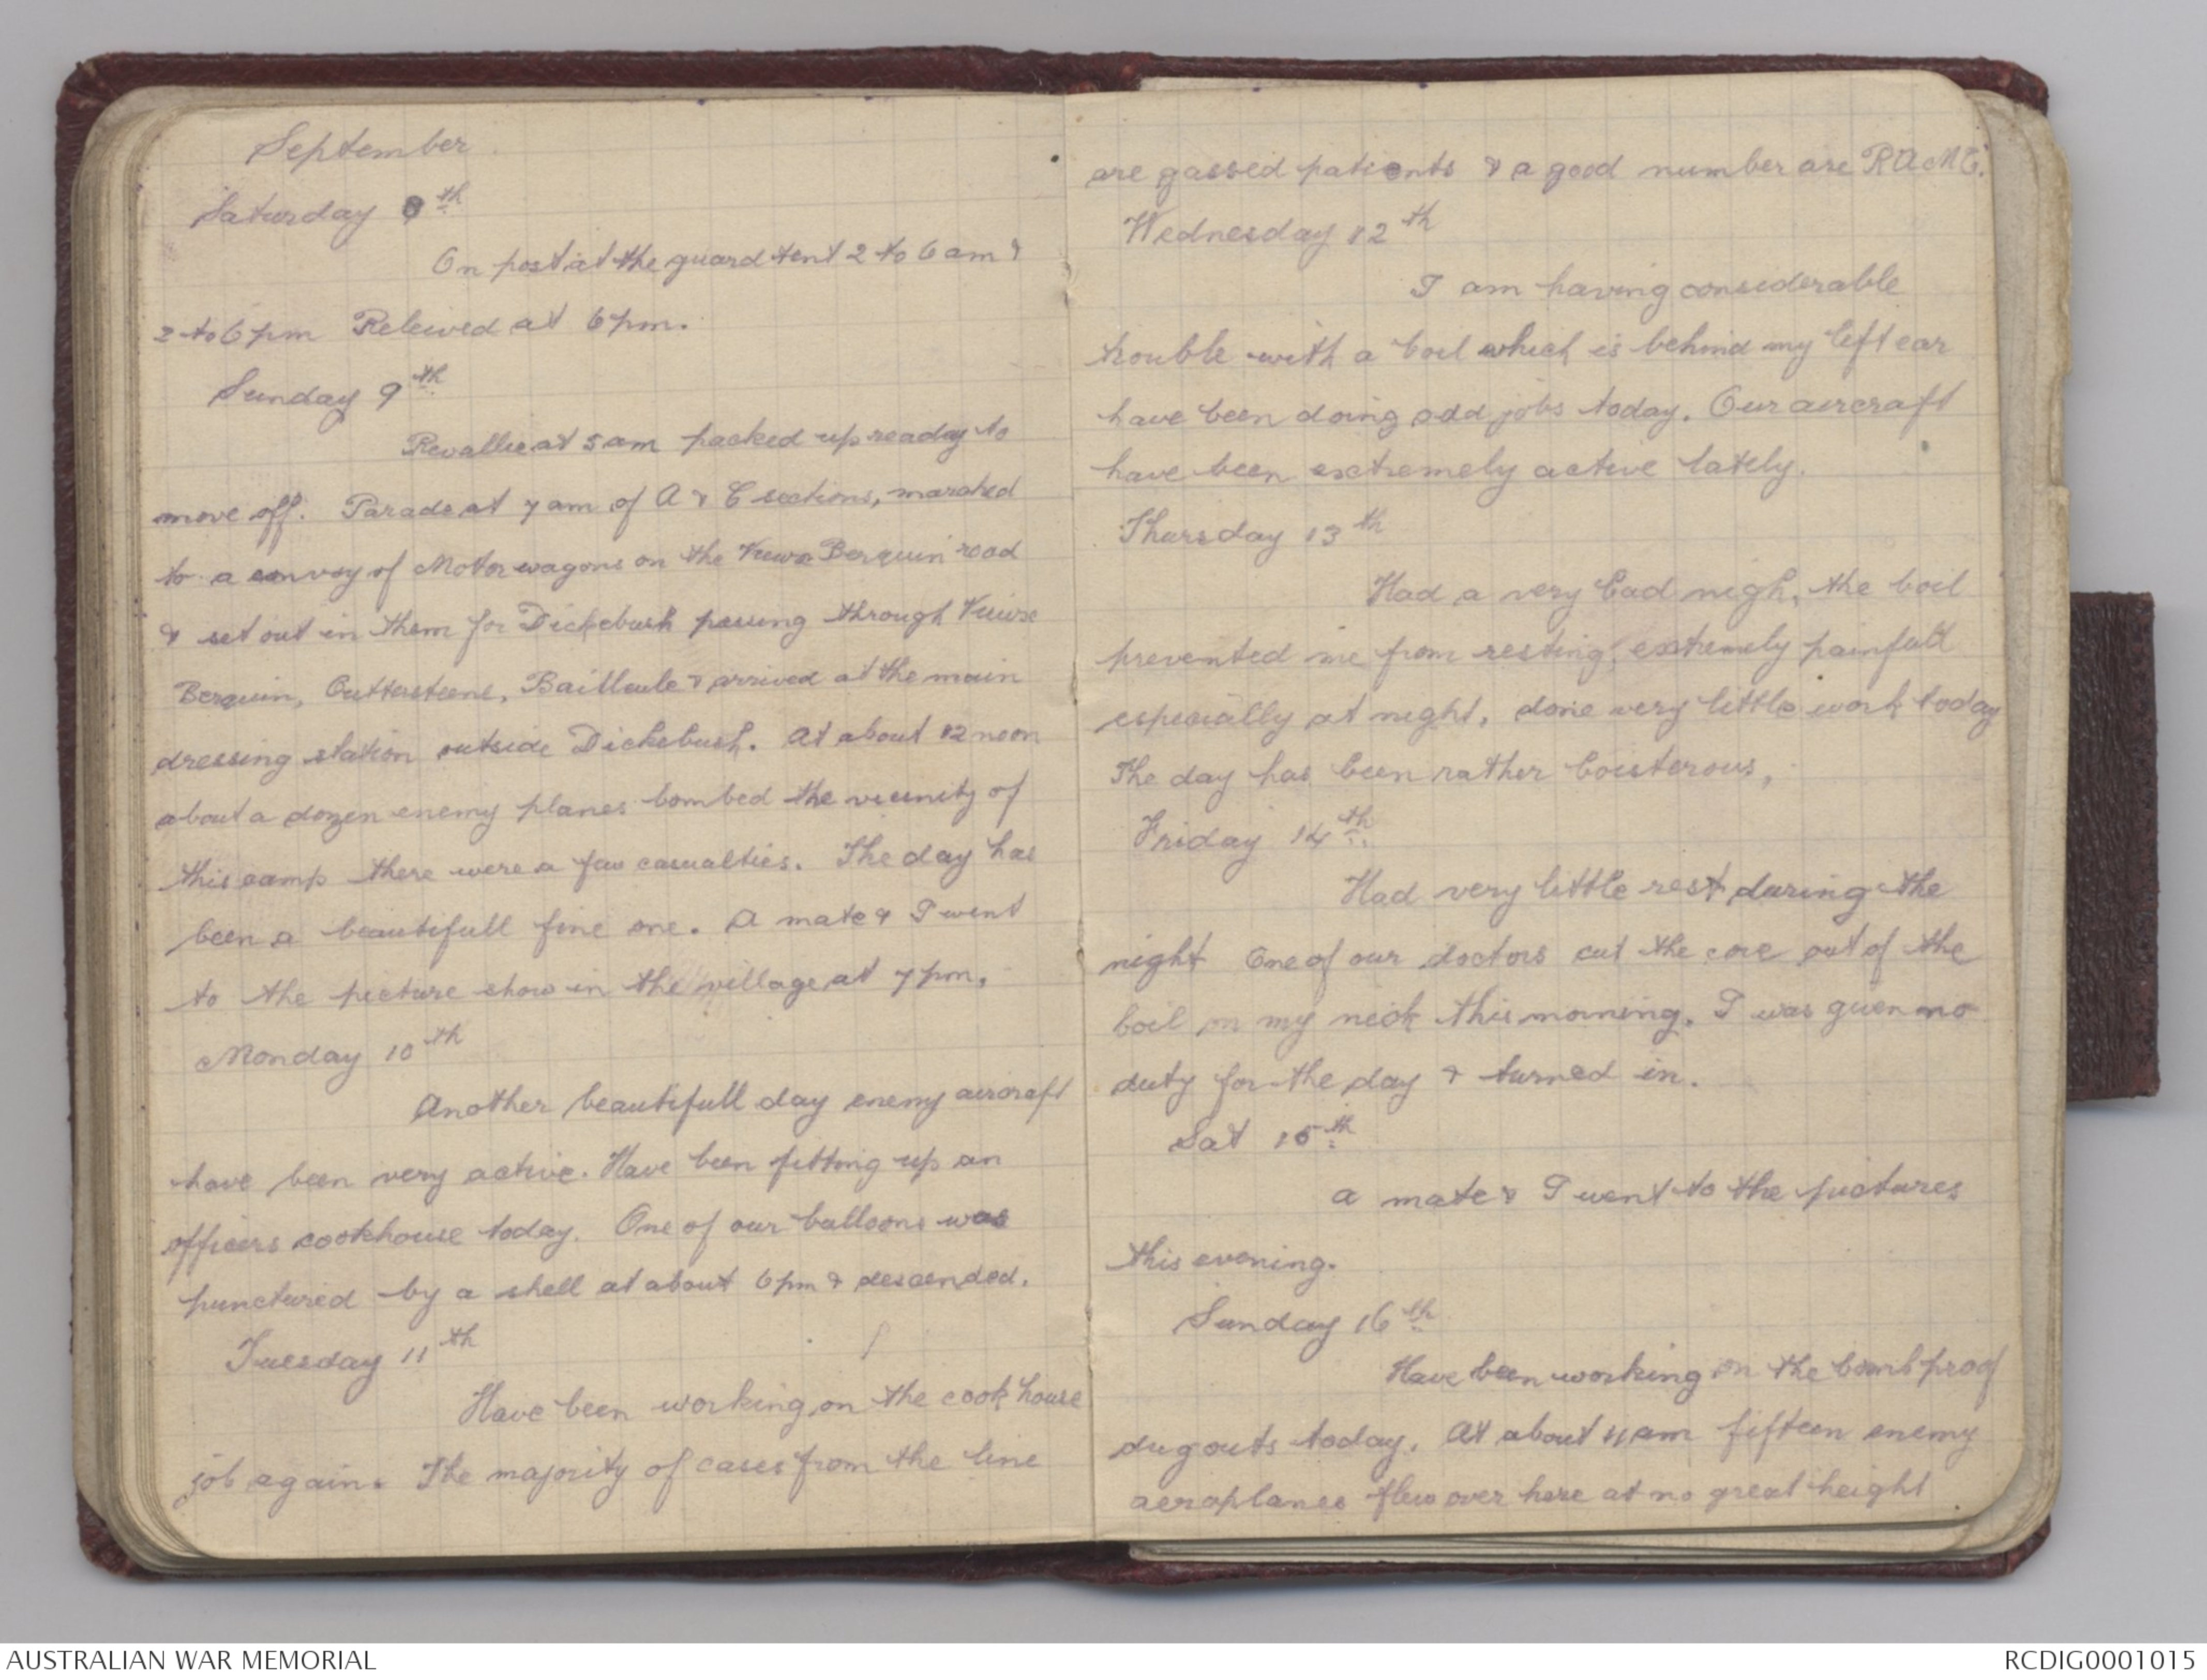 September
Saturday 8th
On post at the guard tent 2 to 6 am &
2 to 6 pm Releived at 6 pm.
Sunday 9th
Revallie at 5 am packed up ready to
move off. Parade at 7 am of A & C sections, marched
to a convoy of Motor wagons on the Vieux Berquin road
& set out in them for Dickebush passing through Vieux
Berquin, Outtersteene, Bailleule & arrived at the main
dressing station outside Dickebush. At about 12 noon
about a dozen enemy planes bombed the vicinity of
this camp there were a few casualties. The day has
been a beautifull fine one. A mate & I went
to the picture show in the village at 7 pm.
Monday 10th
Another beautifull day enemy aircraft
have been very active. Have been fitting up an
officers cookhouse today. One of our balloons was
punctured by a shell at about 6 pm & descended.
Tuesday 11th
Have been working on the cook house
job again. The majority of cases from the line
are gassed patients & a good number are RAMC.
Wednesday 12th
I am having considerable
trouble with a boil which is behind my left ear
have been doing odd jobs today. Our aircraft
have been extremely active lately.
Thursday 13th
Had a very bad nigh, the boil
prevented me from resting, extremely painfull
especially at night, done very little work today
The day has been rather boisterous,
Friday 14th
Had very little rest during the
night One of our doctors cut the core out of the
boil on my neck this morning. I was given no
duty for the day & turned in.
Sat 15th
A mate & I went to the pictures
this evening.
Sunday 16th
Have been working on the bomb proof
dugouts today. At about 11 am fifteen enemy
aeroplanes flew over here at no great height
AUSTRALIAN WAR MEMORIAL
RCDIG0001015